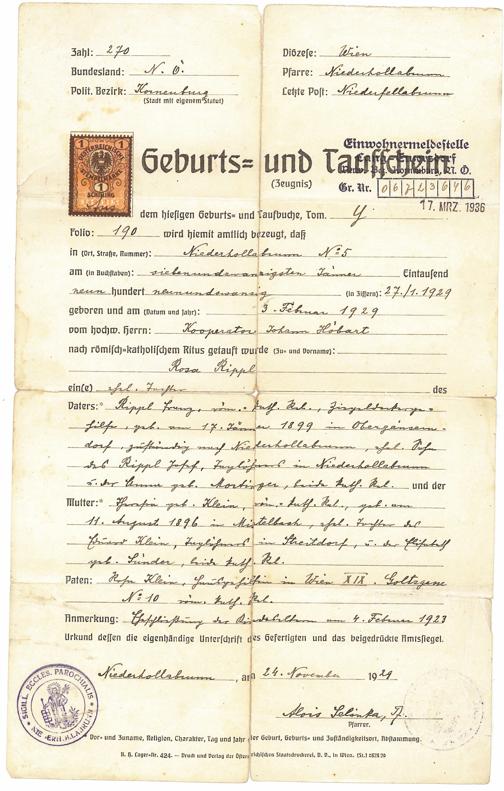 Zahl: 270
Diözese: Wien
Bundesland: N. Ö.
Pfarre: Niederhollabrunn
Polit. Bezirk: Korneuburg
(Stadt mit eigenem Statut)
Letzte Post: Niederfellabrunn
1 1
ÖSTERREICHISCHE
STEMPELMARKE
1
SCHILLING
Einwohnermeldestelle
Bez. Korneuburg, N. Ö.
Gr. Nr.
17. MRZ. 1936
Geburts= und Taufschein
(Zeugnis)
dem hiesigen Geburts= und Taufbuche, Tom.
Folio: 190 wird hiemit amtlich bezeugt, daß
in (Ort, Straße, Nummer): Niederhollabrunn No 5
am (in Buchstaben): siebenundzwanzigsten Jänner Eintausend
neun hundert neunundzwanzig (in Ziffern): 27./1. 1929
geboren und am (Datum und Jahr): 3. Februar 1929
vom hochw. Herrn: Kooperator Johann Höbart
nach römisch=katholischem Ritus getauft wurde (Zu= und Vorname):
Rosa Rippl
ein(e) ehel. Tochter des
Vaters:* Rippl Franz, röm. kath. Rel., Ziegeldeckerge=
hilfe, geb. am 17. Jänner 1899 in Obergänsern=
dorf, zuständig nach Niederhollabrunn, ehel. Sohn
des Rippl Josef, Taglöhners in Niederhollabrunn
u. der Anna geb. beide kath. Rel. und der
Mutter:* geb. Klein, röm. kath. Rel., geb. am
11. August 1896 in Mistelbach, ehel. Tochter des
Eduard Klein, Taglöhners in Streitdorf, u. der Elisabeth
geb. Sünder, beide kath. Rel.
Paten: Rosa Klein, Hausgehilfin in Wien XIX.
No 10 röm. kath. Rel.
Anmerkung: Eheschließung der Kindeseltern am 4. Februar 1923
Urkund dessen die eigenhändige Unterschrift des Gefertigten und das beigedrückte Amtssiegel.
SIGILL. ECCLES. PAROCHIALIS
Niederhollabrunn, am 24. November 1929
Alois
Pfarrer.
* Vor= und Zuname, Religion, Charakter, Tag und Jahr der Geburt, Geburts= und Zuständigkeitsort, Abstammung.
Lager=Nr. 424. — Druck und Verlag der Österreichischen Staatsdruckerei, in Wien.